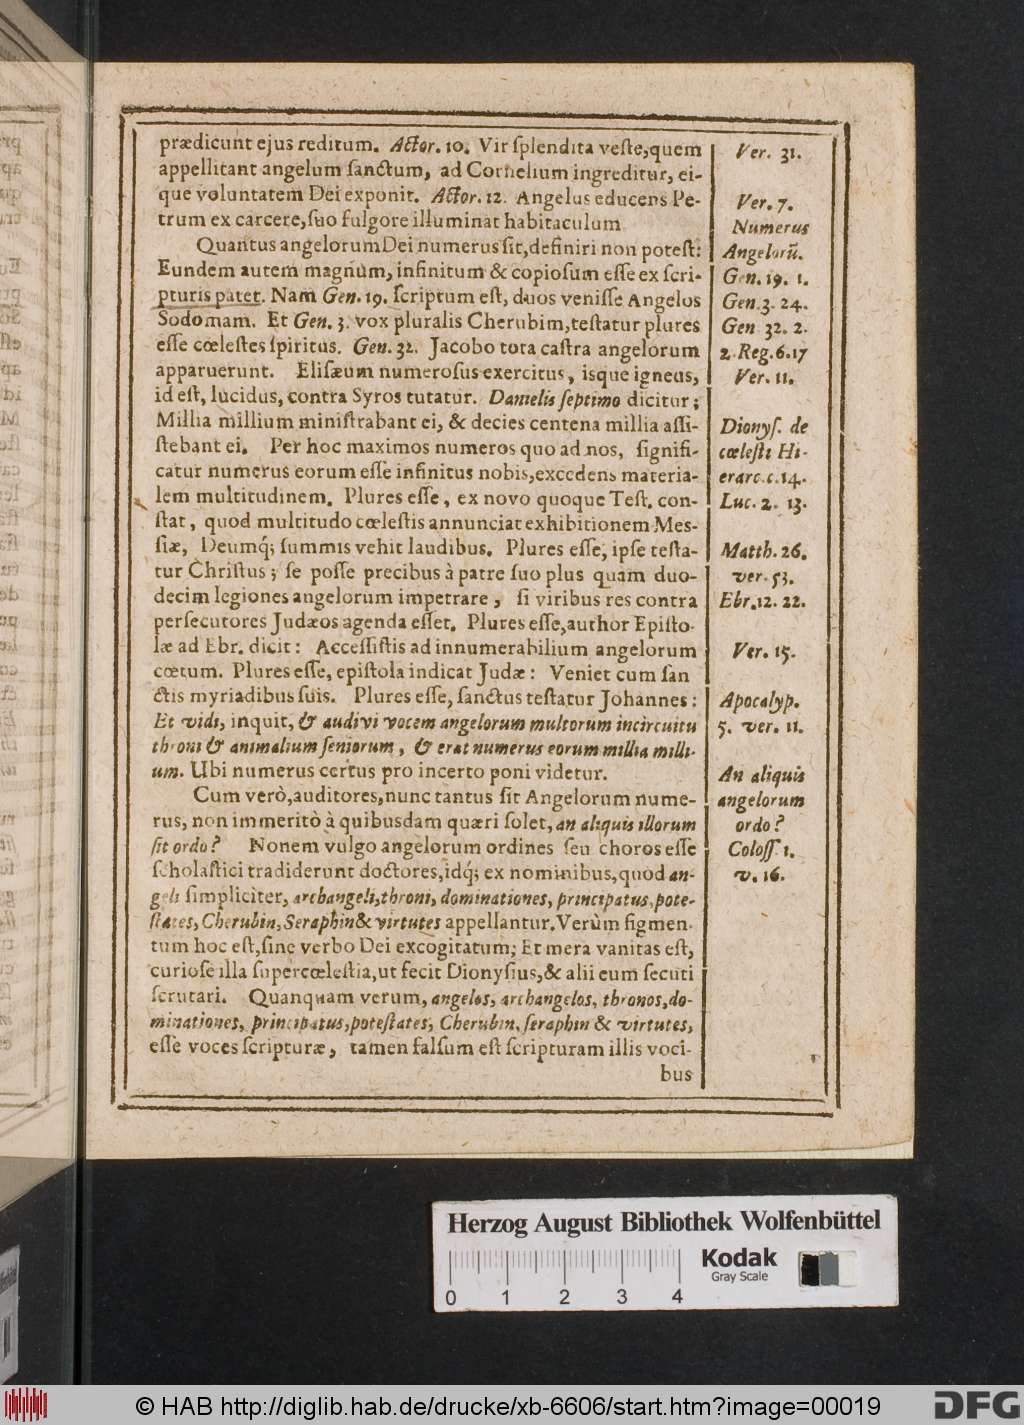 prædicunt ejus reditum. Actor. 10. Vir ſplendita veſte, quem
appellitant angelum ſanctum, ad Cornelium ingreditur, ei-
que voluntatem Dei exponit. Actor. 12. Angelus educens Pe-
trum ex carcere, ſuo fulgore illuminat habitaculum
Quantus angelorum Dei numerus ſit, definiri non poteſt:
Eundem autem magnum, infinitum & copioſum eſſe ex ſcri-
pturis patet. Nam Gen. 19. ſcriptum eſt, duos veniſſe Angelos
Sodomam. Et Gen. 3. vox pluralis Cherubim, teſtatur plures
eſſe cœleſtes ſpiritus. Gen. 32. Jacobo tota caſtra angelorum
apparuerunt. Eliſæum numeroſus exercitus, isque igneus,
id eſt, lucidus, contra Syros tutatur. Danielis ſeptimo dicitur;
Millia millium miniſtrabant ei, & decies centena millia aſſi-
ſtebant ei. Per hoc maximos numeros quo ad nos, ſignifi-
catur numerus eorum eſſe infinitus nobis, excedens materia-
lem multitudinem. Plures eſſe, ex novo quoque Teſt. con-
ſtat, quod multitudo cœleſtis annunciat exhibitionem Meſ-
ſiæ, Deumq́; ſummis vehit laudibus. Plures eſſe, ipſe teſta-
tur Chriſtus; ſe poſſe precibus à patre ſuo plus quam duo-
decim legiones angelorum impetrare, ſi viribus res contra
perſecutores Judæos agenda eſſet. Plures eſſe, author Epiſto-
læ ad Ebr. dicit: Acceſſiſtis ad innumerabilium angelorum
cœtum. Plures eſſe, epiſtola indicat Judæ: Veniet cum ſan
ctis myriadibus ſuis. Plures eſſe, ſanctus teſtatur Johannes:
Et vidi, inquit, & audivi vocem angelorum multorum incircuitu
throni & animalium ſeniorum, & erat numerus eorum millia milli-
um. Ubi numerus certus pro incerto poni videtur.
Cum verò, auditores, nunc tantus ſit Angelorum nume-
rus, non immeritò à quibusdam quæri ſolet, an aliquis illorum
ſit ordo? Nonem vulgo angelorum ordines ſeu choros eſſe
ſcholaſtici tradiderunt doctores, idq́; ex nominibus, quod an-
geli ſimpliciter, archangeli, throni, dominationes, principatus, pote-
ſtates, Cherubin, Seraphin & virtutes appellantur. Verùm figmen-
tum hoc eſt, ſine verbo Dei excogitatum; Et mera vanitas eſt,
curioſe illa ſupercœleſtia, ut fecit Dionyſius, & alii eum ſecuti
ſcrutari. Quanquam verum, angelos, archangelos, thronos, do-
minationes, principatus, poteſtates, Cherubin, ſeraphin & virtutes,
eſſe voces ſcripturæ, tamen falſum eſt ſcripturam illis voci-
bus
Ver. 31.
Ver. 7.
Numerus
Angelorũ.
Gen. 19. 1.
Gen. 3. 24.
Gen 32. 2.
2. Reg. 6. 17
Ver. 11.
Dionyſ. de
cœleſti Hi-
erarc. c. 14.
Luc. 2. 13.
Matth. 26.
ver. 53.
Ebr. 12. 22.
Ver. 15.
Apocalyp.
5. ver. 11.
An aliquis
angelorum
ordo?
Coloſſ. 1.
v. 16.
Herzog August Bibliothek Wolfenbüttel
Kodak
Gray Scale
0 1 2 3 4
© HAB http://diglib.hab.de/drucke/xb-6606/start.htm?image=00019
DFG